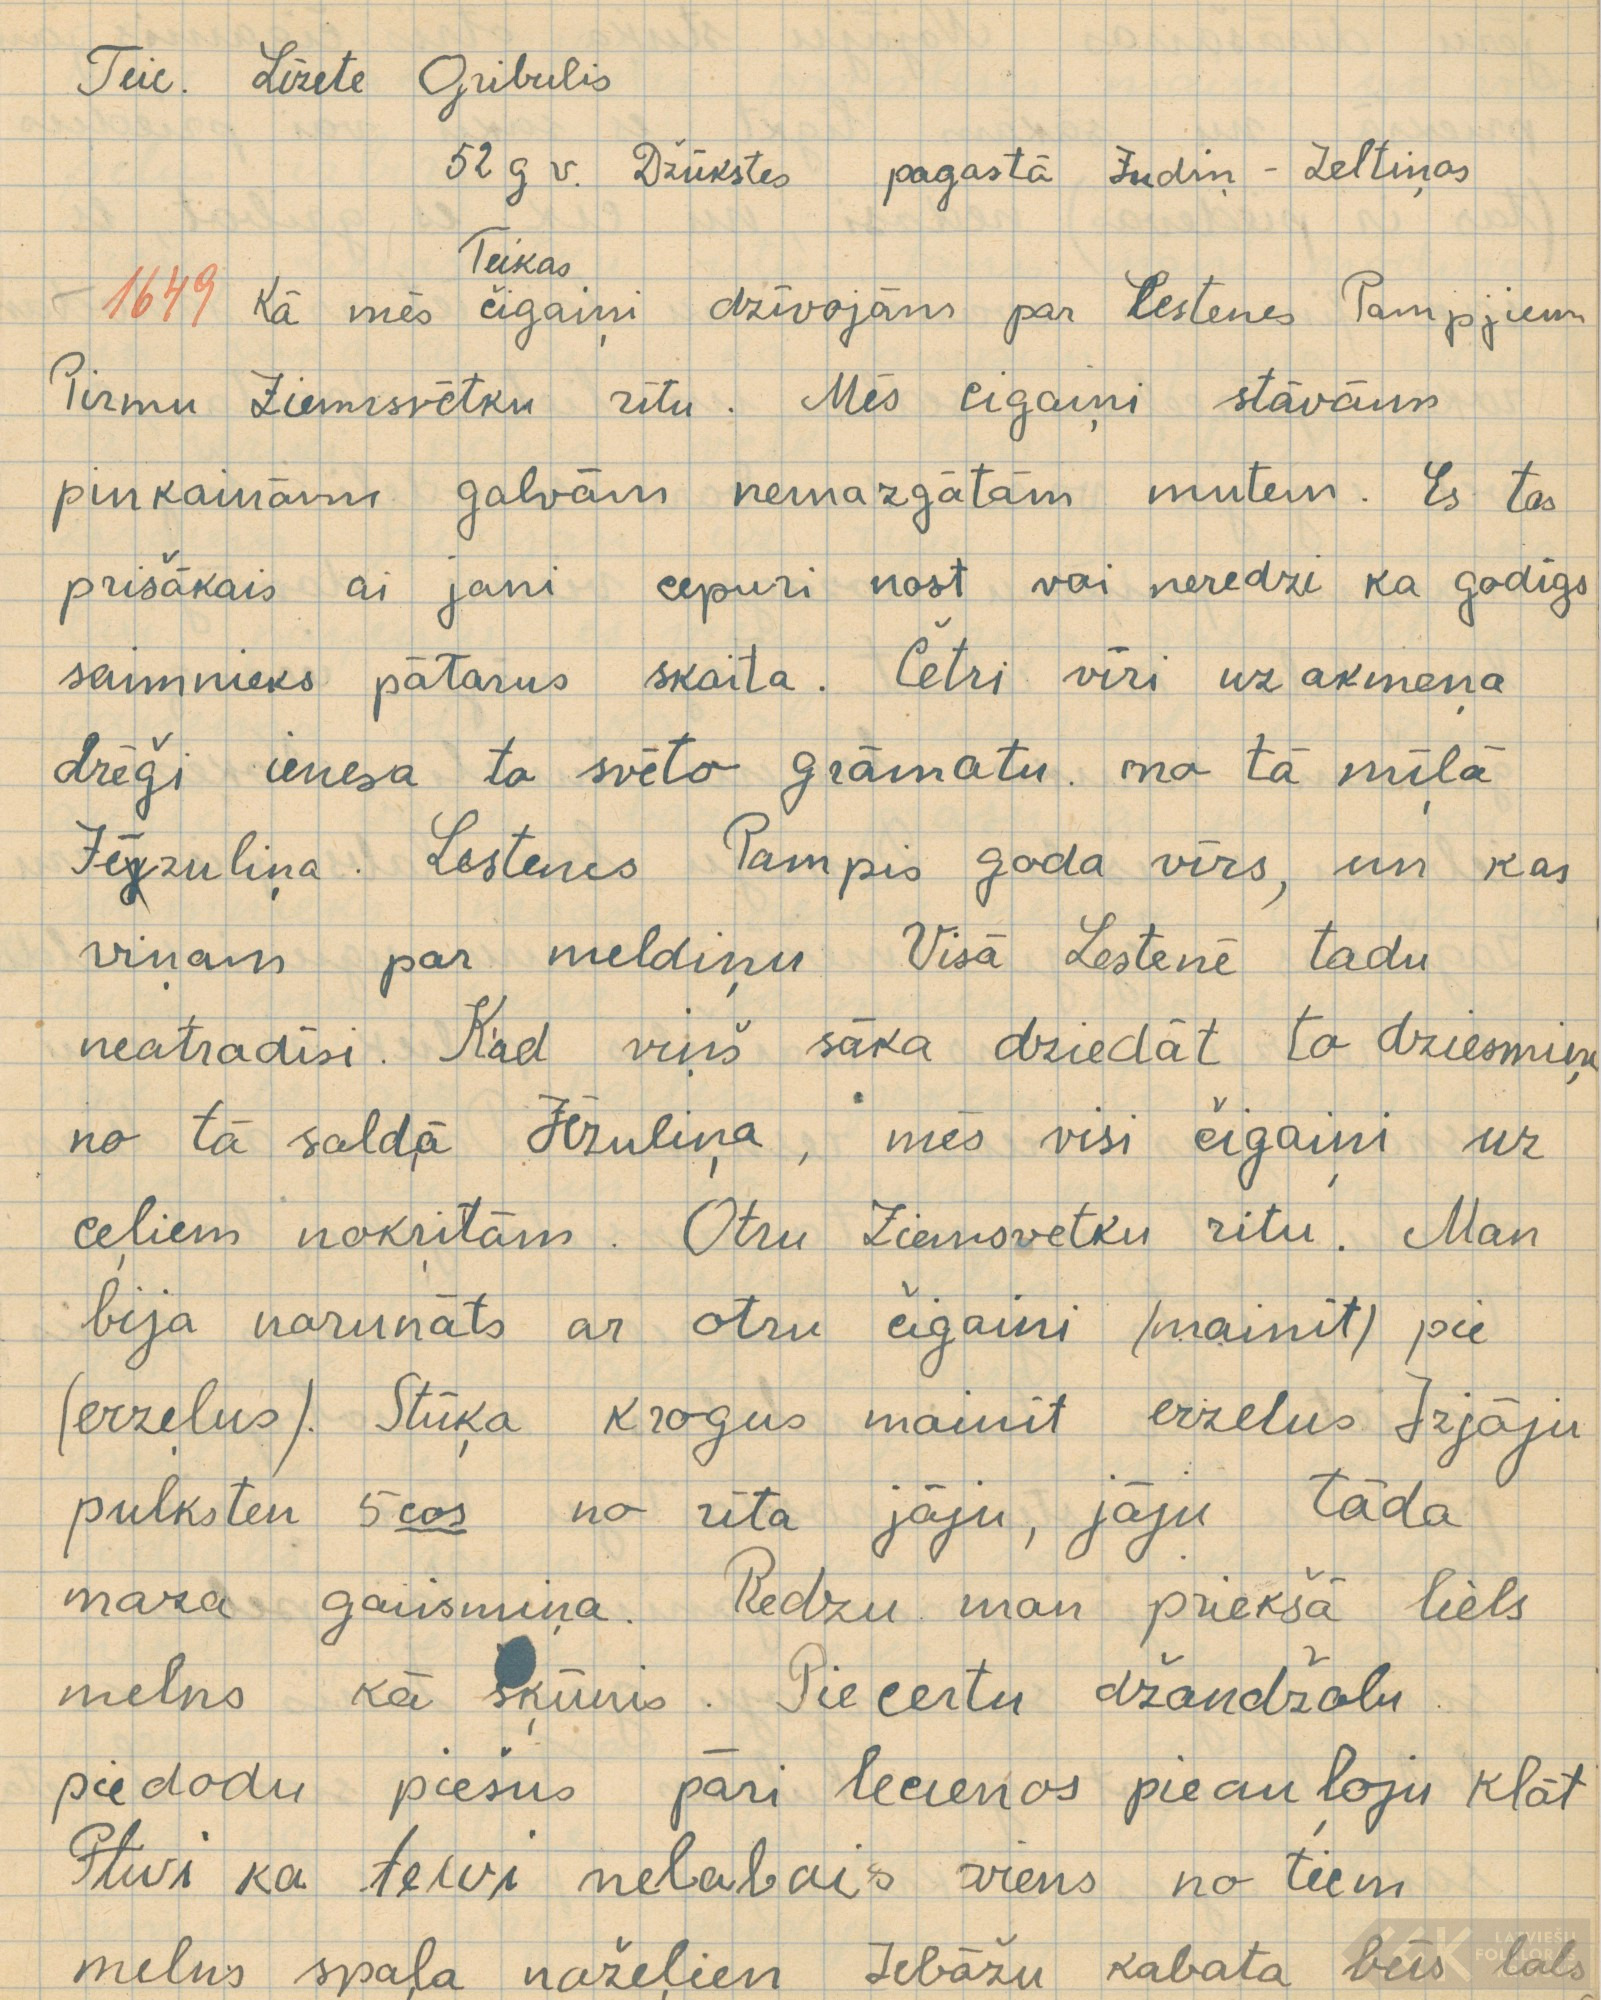 Teic. Lizete Gribulis
52 g v. Džūkstes pagastā Indiņ - Zeltiņos
Teikas
1649 Kā mēs čigaiņi dzīvojām par Lestenes Pampjiem
Pirmu Ziemsvētku rītu. Mēs cigaiņi stāvām
pinkainām galvām nemazgātām mutem. Es tas
prišākais ai jani cepuri nost vai neredzi ka godīgs
saimnieks pātarus skaita. Četri vīri uz akmeņa
drēģi ienesa to svēto grāmatu. no tā mīļā
Jēzuliņa. Lestenes Pampis goda vīrs, un kas
viņam par meldiņu Visā Lestenē tadu
neatradīsi. Kad viņš sāka dziedāt to dziesmiņu
no tā saldā Jēzuliņa, mēs visi čigaiņi uz
ceļiem nokŗitām. Otru Ziemsvetku ritu. Man
bija narunāts ar otru čigaini (mainīt) pie
(erzeļus). Stūķa krogus mainīt erzelus Izjāju
pulksten 5cos no rīta jāju, jāju tāda
maza gaismiņa. Redzu man priekšā liels
melns kā šķūnis. Piecertu džandžalu
piedodu piešus pāri lecienos pieauļoju klāt
Ptvi ka tewi nelabais viens no tiem
melns spaļa nažeļien Iebāžu kabata būs labs
LATVIEŠU
FOLKLORAS